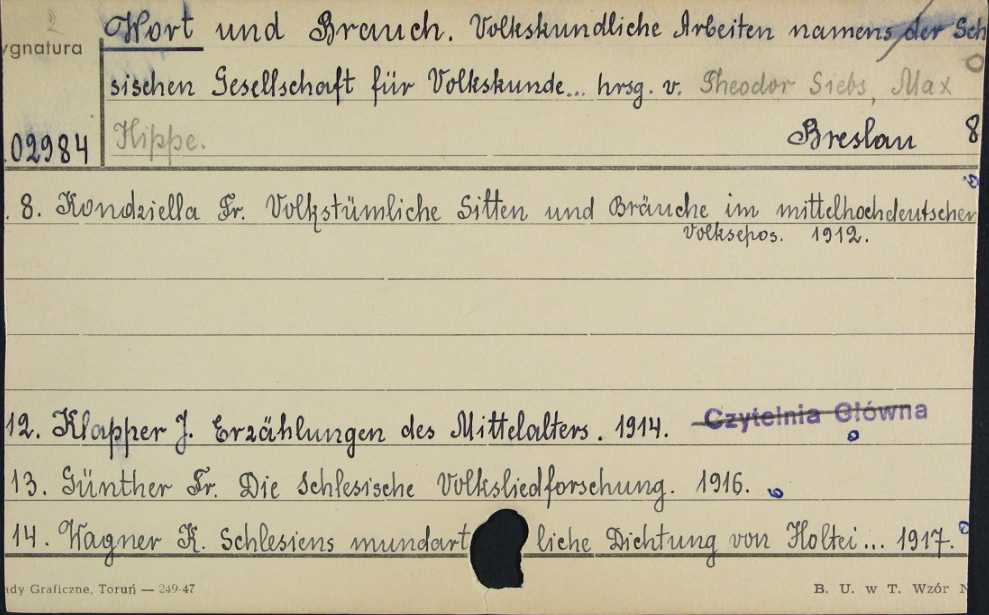 Wort und Brauch. Volkskundliche Arbeiten namens der Sch
ygnatura
sischen Gesellschaft für Volkskunde... hrsg. v. Theodor Siebs, Max
.02984 Hippe. Breslau 8
. 8. Kondziella Fr. Volkstümliche Sitten und Bräuche im mittelhochdeutschen
Volksepos. 1912.
12. Klapper J. Erzählungen des Mittelalters. 1914. Czytelnia Główna
13. Günther Fr. Die Schlesische Volksliedforschung. 1916.
14. Wagner K. Schlesiens mundartliche Dichtung von Holtei... 1917.
ady Graficzne, Toruń — 249-47 B. U. w T. Wzór N